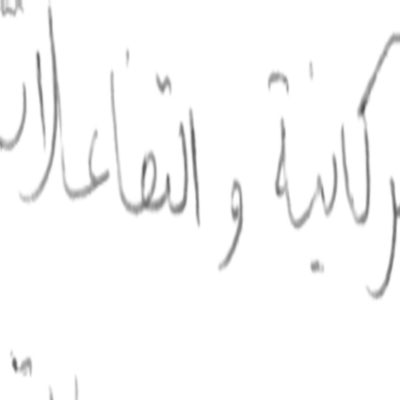 ركانية و التفاعلات